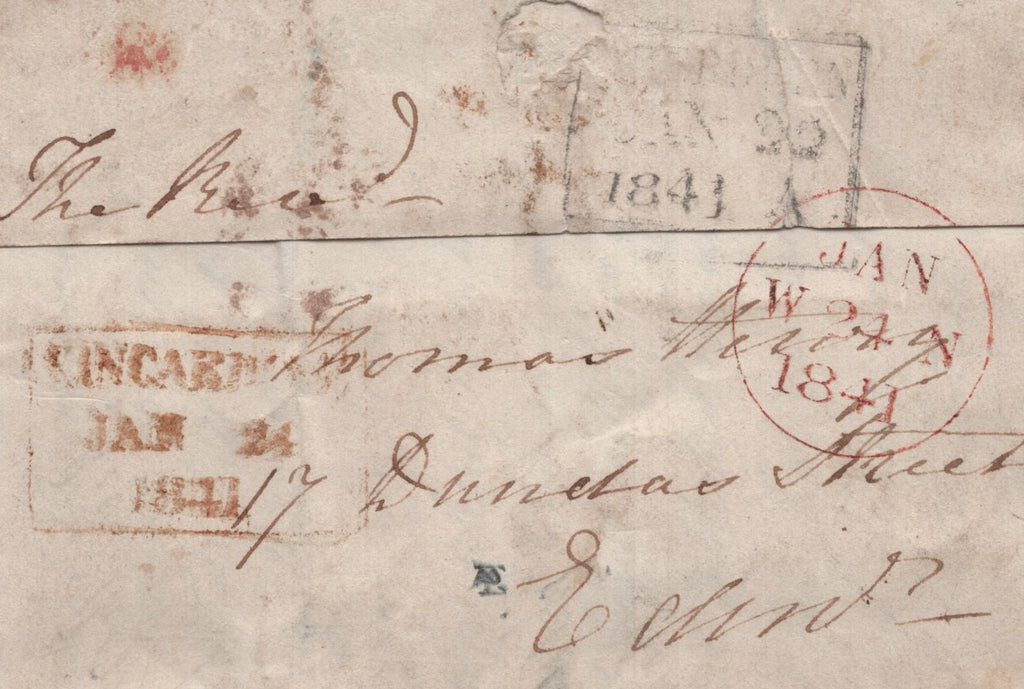 The Revd
JAN 22
1841 A
JAN
W 24 N
1841
KINCARDINE
JAN 24
1841
Thomas
17 Dundas Street
Edinr